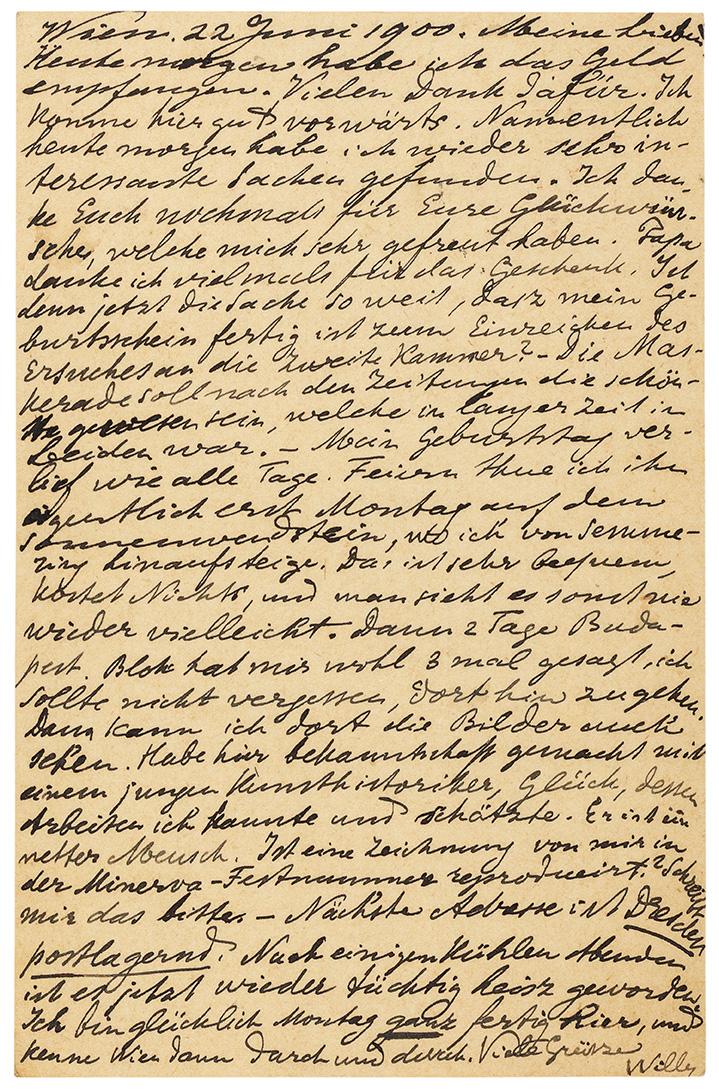 Wien. 22 Juni 1900. Meine Lieben
Heute morgen habe ich das Geld
empfangen. Vielen Dank dafür. Ich
komme hier gut vorwärts. Namentlich
heute morgen habe ich wieder sehr in-
teressante Sachen gefunden. Ich dan-
ke Euch nochmals für Eure Glückwün-
sche, welche mich sehr gefreut haben. Papa
danke ich vielmals für das Geschenk. Ist
denn jetzt die Sache so weit, dasz mein Ge-
burtsschein fertig ist zum Einreichen des
Ersuches an die zweite Kammer? - Die Mas-
kerade soll nach den Zeitungen die schön-
ste gewesen sein, welche in langer Zeit in
Leiden war. - Mein Geburtstag ver-
lief wie alle Tage. Feiern thue ich ihn
eigentlich erst Montag auf dem
Sonnenwendstein, wo ich von Semme-
ring hinaufsteige. Das ist sehr bequem,
kostet Nichts, und man sieht es sonst nie
wieder vielleicht. Dann 2 Tage Buda-
pest. Blok hat mir wohl 3 mal gesagt, ich
sollte nicht vergessen, dort hin zu gehen.
Dann kann ich dort die Bilder auch
sehen. Habe hier bekanntschaft gemacht mit
einem jungen Kunsthistoriker, Glück, dessen
Arbeiten ich kannte und schätzte. Er ist ein
netter Mensch. Ist eine Zeichnung von mir in
der Minerva-Festnummer reproducirt? Schreibt
mir das bitte. - Nächste Adresse ist Dresden
postlagernd. Nach einigen kühlen Abenden
ist es jetzt wieder tüchtig heisz geworden.
Ich bin glücklich Montag ganz fertig hier, und
kenne Wien dann durch und durch. Viele Grüsze
Willy